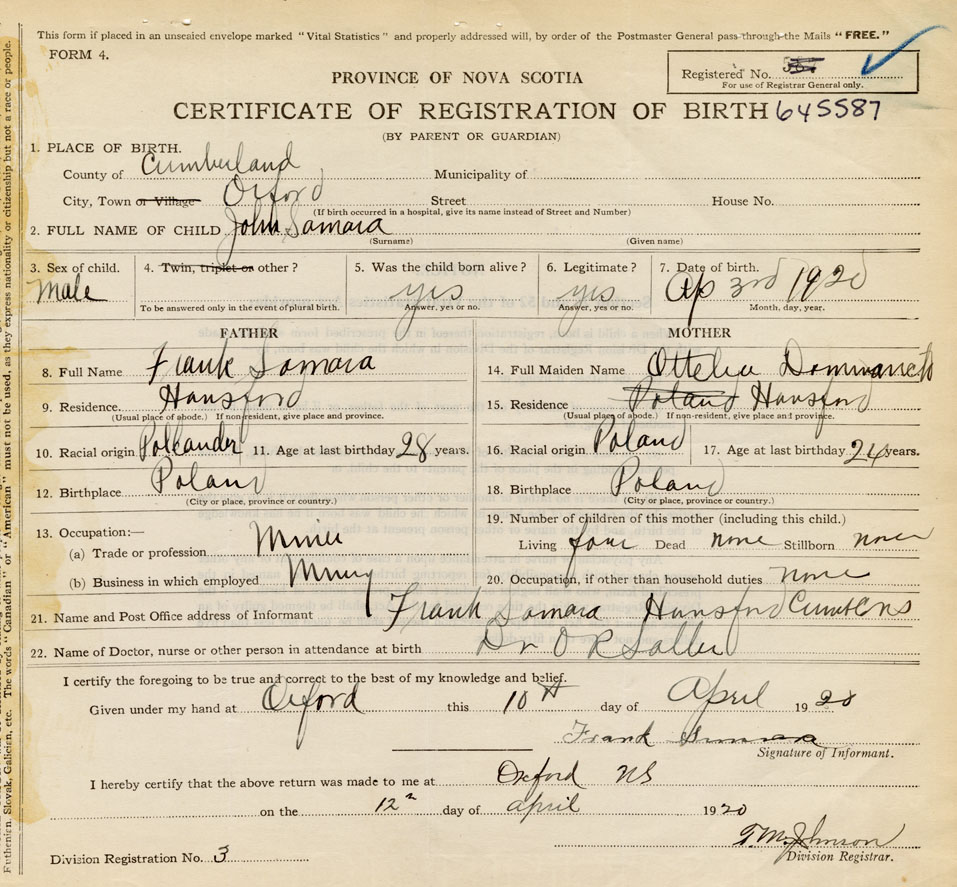 This form if placed in an unsealed envelope marked "Vital Statistics" and properly addressed will, by order of the Postmaster General pass through the Mails "FREE."
FORM 4.
PROVINCE OF NOVA SCOTIA
Registered No.
For use of Registrar General only.
CERTIFICATE OF REGISTRATION OF BIRTH 645587
(BY PARENT OR GUARDIAN)
1. PLACE OF BIRTH.
County of Cumberland Municipality of
City, Town or Village Oxford Street House No.
(If birth occurred in a hospital, give its name instead of Street and Number)
2. FULL NAME OF CHILD John Samara
(Surname) (Given name)
3. Sex of child. 4. Twin, triplet or other? 5. Was the child born alive? 6. Legitimate? 7. Date of birth.
Male yes yes Ap 3rd 1920
To be answered only in the event of plural birth. Answer, yes or no. Answer, yes or no. Month, day, year.
FATHER MOTHER
8. Full Name Frank Samara 14. Full Maiden Name Ottelia
9. Residence. Hansford 15. Residence Poland Hansford
(Usual place of abode.) If non-resident, give place and province. (Usual place of abode.) If non-resident, give place and province.
10. Racial origin Polcander 11. Age at last birthday 28 years. 16. Racial origin Poland 17. Age at last birthday 24 years.
12. Birthplace Poland 18. Birthplace Poland
(City or place, province or country.) (City or place, province or country.)
13. Occupation:— 19. Number of children of this mother (including this child.)
(a) Trade or profession Miner Living four Dead none Stillborn none
(b) Business in which employed 20. Occupation, if other than household duties none
21. Name and Post Office address of Informant Frank Samara Hansford
22. Name of Doctor, nurse or other person in attendance at birth Dr O R
I certify the foregoing to be true and correct to the best of my knowledge and belief.
Given under my hand at Oxford this 10th day of April 1920
Frank Samara
Signature of Informant.
I hereby certify that the above return was made to me at Oxford NS
on the 12 day of april 1920
T.M. Johnson
Division Registrar.
Division Registration No. 3
Slovak, Galician, etc. The words "Canadian" or "American" must not be used, as they express nationality or citizenship but not a race or people.